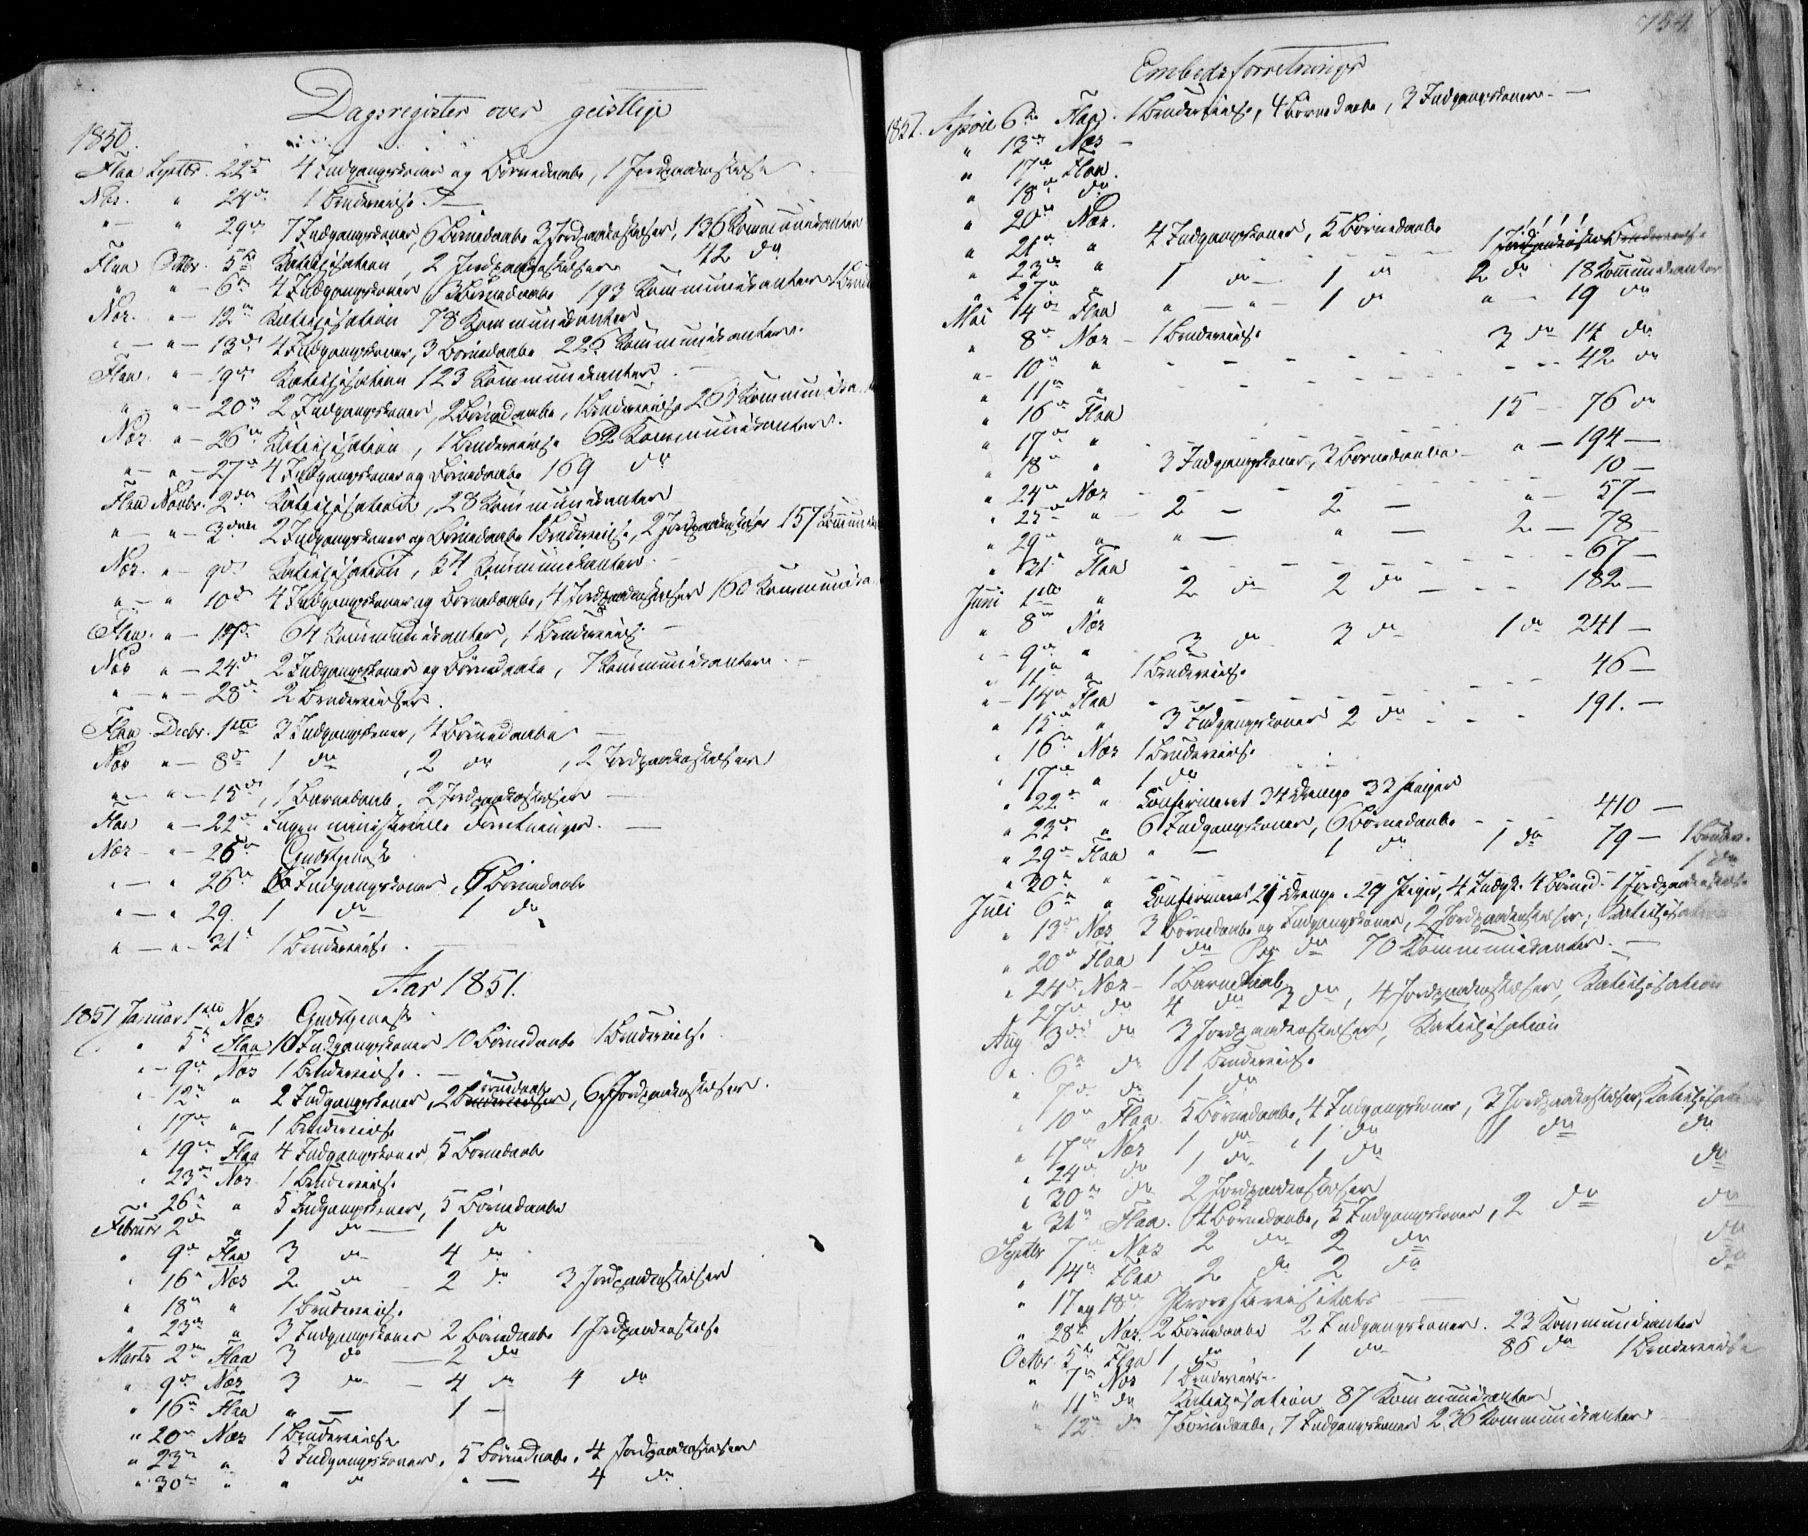 Dagsregister over geistlige
1850.
Flaa Septbr. 22de 4 Indgangskoner og Børnedaabe, 1 Jordpaakastelse
Næs. " 24de 1 Brudevielse.
" — " 29de 7 Indgangskoner, 6 Børnedaabe 3 Jordpaakastelser, 136 Kommunikanter
Flaa Octbr. 5te Katekisation, 2 Jordpaakastelser 42 do
" " — 6te 4 Indgangskoner 3 Børnedaabe 193 Kommunikanter 1
Næs. " — 12te Katekisation 78 Kommunikanter
" — " — 13de 4 Indgangskoner, 3 Børnedaabe 226 Kommunikanter.
Flaa. " — 19de Katekisation 123 Kommunikanter.
" " — 20de 2 Indgangskoner, 2 Børnedaabe, 1 Brudevielse 261
Næs. " — 26de Katekisation, 1 Brudevielse 62 Kommunikanter.
" — " — 27de 4 Indgangskoner og Børnedaabe 169 do
Flaa Novbr. 2den Katekisation, 28 Kommunikanter
" — " — 3die 2 Indgangskoner og Børnedaabe 1 Brudevielse, 2 Jordpaakastelser 157
Næs. " — 9de Katekisation, 54 Kommunikanter.
" — " 10de 4 Indgangskoner og Børnedaabe, 4 Jordpaakastelser 160
Flaa. " — 17de 64 Kommunikanter, 1 Brudevielse. —
Næs " — 24de 2 Indgangskoner og Børnedaabe, 7 Kommunikanter. —
" — " — 28de 2 Brudevielser.
Flaa Decbr. 1ste 3 Indgangskoner, 4 Børnedaabe —
Næs " — 8de 1 do, 2 do, 2 Jordpaakastelser
" — " — 15de, 1 Barnedaab, 2 Jordpaakastelser —
Flaa " — 22de Ingen ministerielle Forretninger. —
Næs — " — 25de Gudstjeneste
" — " 26de 6 Indgangskoner, 6 Børnedaabe
" — " 29. 1 do 1 do
" — " — 31te 1 Brudevielse.
Aar 1851.
1851 Januar 1ste Næs Gudstjeneste
" 5te Flaa 10 Indgangskoner 10 Børnedaabe 1 Brudevielse.
" — 9de Næs 1 Brudevielse. —
" 12te " 2 Indgangskoner, 2 Børnedaabe, 6 Jordpaakastelser.
" 17de " 1 Brudevielse
" 19de Flaa 4 Indgangskoner, 5 Børnedaabe
" 23de Næs 1 Brudevielse
" 26de " 5 Indgangskoner, 5 Børnedaabe
Februar 2den " 1 do — 1 do
" 9de Flaa 3 do 4 do
" 16de Næs 2 do — 2 do 3 Jordpaakastelser
" 18de " 1 Brudevielse.
" 23de " 3 Indgangskoner 2 Børnedaabe 1 Jordpaakastelse
Marts 2den Flaa 3 do — 2 do
" 9de Næs 3 do — 4 do 4 do
" 16de Flaa " — 1 —
" 20de Næs 1 Brudevielse
" 23de " 5 Indgangskoner, 5 Børnedaabe, 4 Jordpaakastelser
" 30te " " do " — 4 do
754
Embedsforretninger
1851. April 6te Flaa. 1 Brudevielse, 4 Børnedaabe, 3 Indgangskoner. —
" 13de Næs —
" 17de Flaa.
" 18de do
" 20de Næs.
" 21de " 4 Indgangskoner, 5 Børnedaabe 1
" 23de " 1 do — 1 do 2 do 18 Kommunikanter
" 27de " " — " — 1 do " — 19 do
Mai 4de Flaa
" 8de Næs — 1 Brudevielse 3 do 14 do
" 10de " - - - - - - 42 do
" 11te "
" 16de Flaa 15 — 76 do
" 17de "
" 18de " 3 Indgangskoner, 3 Børnedaabe. " — 194 —
10 —
" 24de Næs - - - - 57 —
" 25de " — 2 — 2 — " —
" 29de " " — " — 2 — 78 —
" 31te Flaa - - - - 67 —
Juni 1ste " 2 do 2 do — - - 182 —
" 8de Næs
" — 9de " 3 do 3 do 1 do 241 —
" 11te " 1 Brudevielse
" — 14de Flaa - - - - 46 —
" 15de " 3 Indgangskoner 2 do - - - 191. —
" 16de Næs 1 Brudevielse
" 17de " 1 do
" 22de " Confirmeret 34 Drenge 33 Piger
" 23de " 6 Indgangskoner, 6 Børnedaabe - - - 410 —
" 29de Flaa " — 1 do 1 do 79 —
" 30te " 1 do
Juli 6te " Confirmeret 21 Drenge. 29 Piger, 4 Indgk. 4 Børned. 1 Jordpaakastelse
" 13de Næs 3 Børnedaabe og Indgangskoner, 2 Jordpaakastelser, Katekisation
" 20de Flaa 1 do og do 70 Kommunikanter. —
" 24de Næs — 1 Barnedaab
" 27de do 4 do 3 do, 4 Jordpaakastelser, Katekisation
Aug 3die do 3 Jordpaakastelser, Katekisation
" 6te do 1 Brudevielse
" 7de do 1 do
" 10de Flaa 5 Børnedaabe, 4 Indgangskoner, 3 Jordpaakastelser, Katekisation
" 17de Næs 1 do, 1 do 1 do do
" 24de do 1 do 1 do do
" 30te do 2 Jordpaakastelser
" 31te Flaa. 4 Børnedaabe, 5 Indgangskoner, 2 do do
Septbr 7de Næs 2 do 2 do do
" 14de Flaa 2 do 2 do do
" 17 og 18de Provstevisitats
" 28de Næs 2 Børnedaabe 2 Indgangskoner. 23 Kommunikanter
Octbr. 5te Flaa 1 do 1 do 86 do 1 Brudevielse
" 7de Næs 1 Brudevielse.
" 11te do Katekisation 87 Kommunikanter
" 12te do 7 Børnedaabe, 7 Indgangskoner 236 Kommunikanter